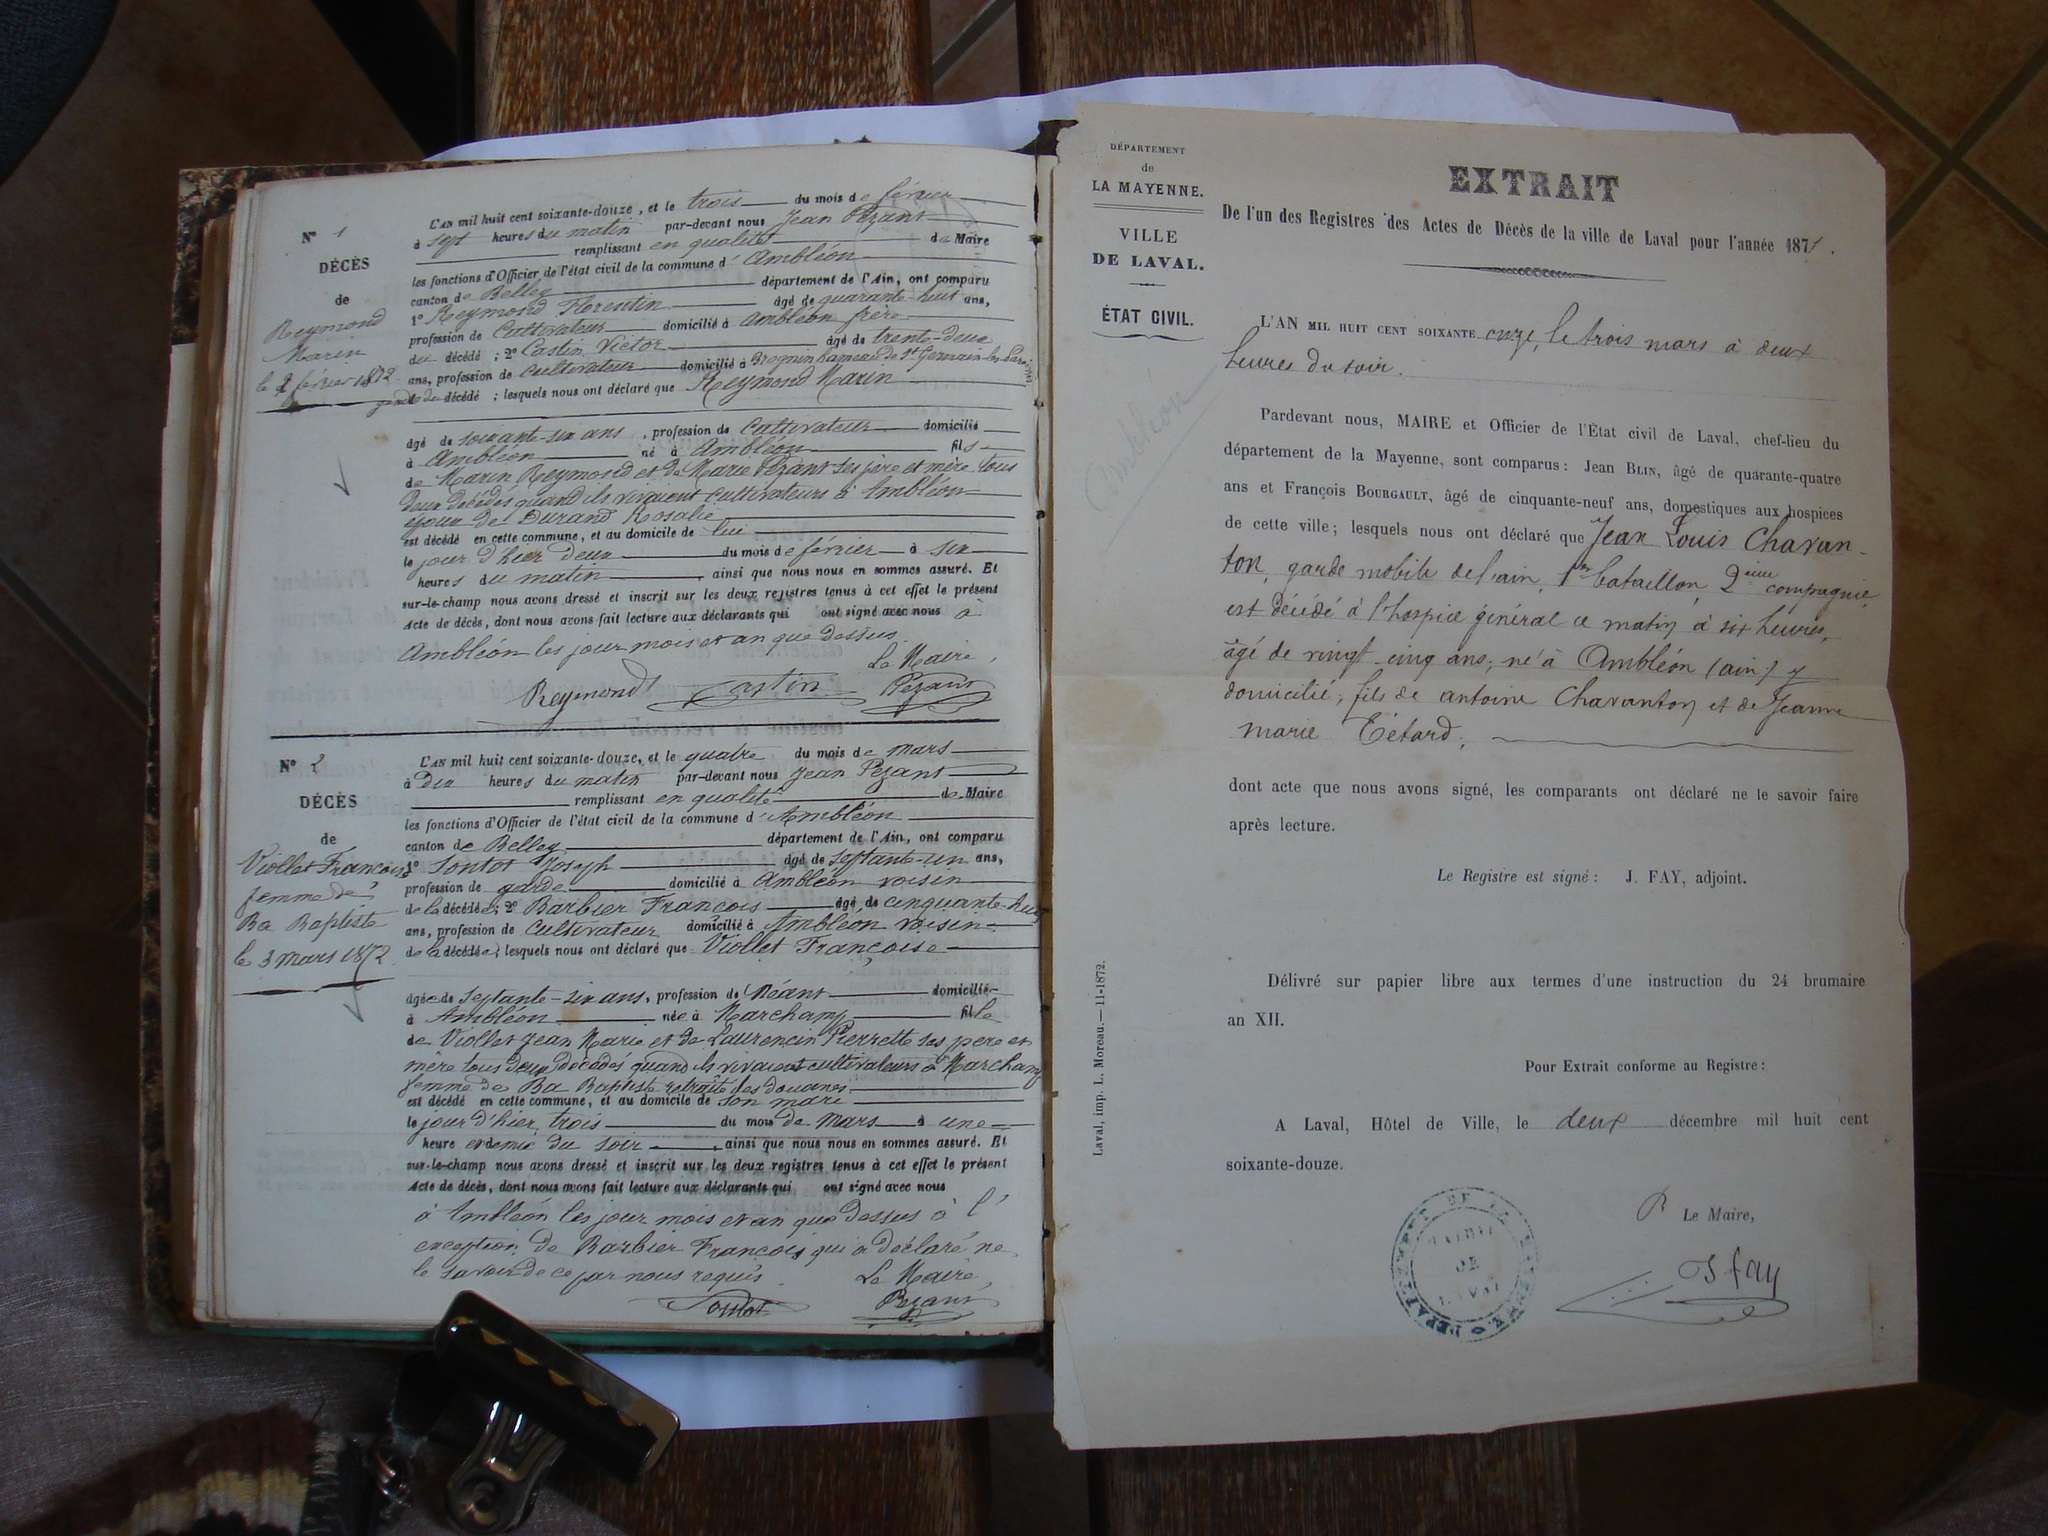 N° 1
DÉCÈS
de
Reymond
Marin
le 2 février 1872
L'AN mil huit cent soixante-douze, et le trois du mois de février
à sept heures du matin par-devant nous Jean Pezant
remplissant en qualité de Maire
les fonctions d'Officier de l'état civil de la commune d'Ambléon
canton de Belley département de l'Ain, ont comparu
1° Reymond Florentin âgé de quarante-huit ans,
profession de Cultivateur domicilié à Ambléon frère
du décédé ; 2° Castin Victor âgé de trente-deux
ans, profession de Cultivateur domicilié à hameau de St Germain les
décédé ; lesquels nous ont déclaré que Reymond Marin
âgé de soixante-six ans, profession de Cultivateur domicilié
à Ambléon né à Ambléon fils
de Marin Reymond et de Marie Pezant ses père et mère tous
deux décédés quand ils vivaient cultivateurs à Ambléon
époux de Durand Rosalie
est décédé en cette commune, et au domicile de lui
le jour d'hier deux du mois de février à six
heures du matin, ainsi que nous nous en sommes assuré. Et
sur-le-champ nous avons dressé et inscrit sur les deux registres tenus à cet effet le présent
Acte de décès, dont nous avons fait lecture aux déclarants qui ont signé avec nous à
Ambléon les jour mois et an que dessus.
Le Maire,
Reymond Castin Pezant
N° 2
DÉCÈS
de
Viollet Françoise
femme de
Ba Baptiste
le 3 mars 1872
L'AN mil huit cent soixante-douze, et le quatre du mois de mars
à dix heures du matin par-devant nous Jean Pezant
remplissant en qualité de Maire
les fonctions d'Officier de l'état civil de la commune d'Ambléon
canton de Belley département de l'Ain, ont comparu
1° Joseph âgé de septante-un ans,
profession de garde domicilié à Ambléon voisin
de la décédée ; 2° Barbier François âgé de cinquante-huit
ans, profession de Cultivateur domicilié à Ambléon voisin
de la décédée ; lesquels nous ont déclaré que Viollet Françoise
âgée de septante-six ans, profession de Néant domicilié
à Ambléon née à Marchamp fille
de Viollet Jean Marie et de Laurencin Pierrette ses père et
mère tous deux décédés quand ils vivaient cultivateurs à Marchamp
femme de Ba Baptiste retraité des douanes
est décédé en cette commune, et au domicile de son mari
le jour d'hier trois du mois de mars à une
heure et demie du soir, ainsi que nous nous en sommes assuré. Et
sur-le-champ nous avons dressé et inscrit sur les deux registres tenus à cet effet le présent
Acte de décès, dont nous avons fait lecture aux déclarants qui ont signé avec nous
à Ambléon les jour mois et an que dessus à l'
exception de Barbier François qui a déclaré ne
le savoir de ce par nous requis.
Le Maire,
Pezant
DÉPARTEMENT
de
LA MAYENNE.
VILLE
DE LAVAL.
ÉTAT CIVIL.
Ambléon
EXTRAIT
De l'un des Registres des Actes de Décès de la ville de Laval pour l'année 1871.
L'AN MIL HUIT CENT SOIXANTE onze, le trois mars à deux
heures du soir.
Pardevant nous, MAIRE et Officier de l'État civil de Laval, chef-lieu du
département de la Mayenne, sont comparus : Jean BLIN, âgé de quarante-quatre
ans et François BOURGAULT, âgé de cinquante-neuf ans, domestiques aux hospices
de cette ville ; lesquels nous ont déclaré que Jean Louis Charvan-
ton, garde mobile de l'ain, 1er bataillon, 2ème compagnie,
est décédé à l'hospice général ce matin à six heures,
âgé de vingt-cinq ans; né à Ambléon (ain) y
domicilié; fils de antoine Charvanton et de Jeanne
marie Tétard.
dont acte que nous avons signé, les comparants ont déclaré ne le savoir faire
après lecture.
Le Registre est signé : J. FAY, adjoint.
Délivré sur papier libre aux termes d'une instruction du 24 brumaire
an XII.
Pour Extrait conforme au Registre :
A Laval, Hôtel de Ville, le deux décembre mil huit cent
soixante-douze.
P Le Maire,
J fay
MAIRIE
DE
LAVAL
Laval, imp. L. Moreau.—11-1872.